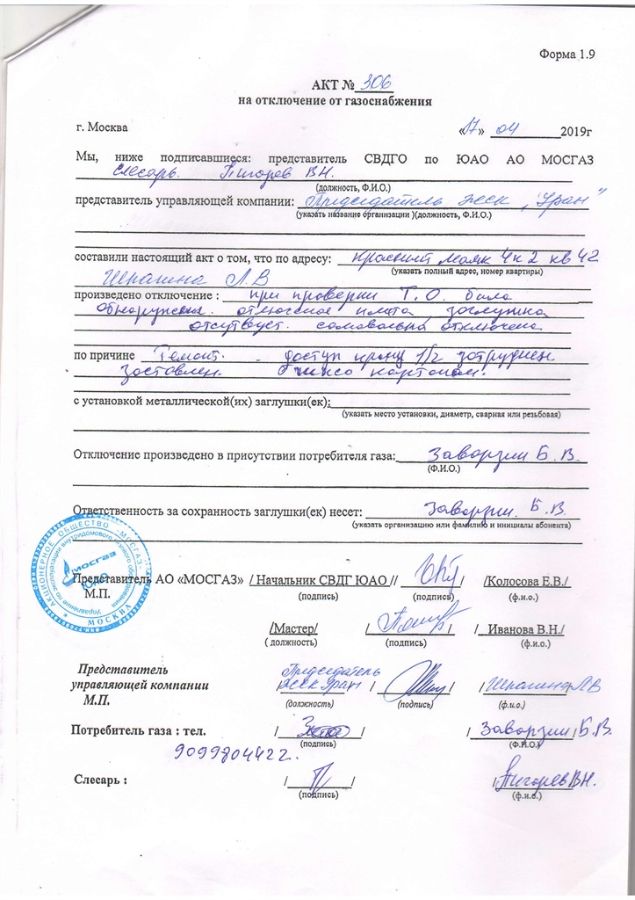 Форма 1.9
АКТ № 306
на отключение от газоснабжения
г. Москва «17» 04 2019г
Мы, ниже подписавшиеся: представитель СВДГО по ЮАО АО МОСГАЗ
слесарь Пигорев В.Н.
(должность, Ф.И.О.)
представитель управляющей компании: Председатель жск „Уран"
(указать название организации )(должность, Ф.И.О.)
составили настоящий акт о том, что по адресу: 4к2 кв 42
(указать полный адрес, номер квартиры)
Шрагина Л.В
произведено отключение : при проверки Т.О. была
обнаружена отлючение плита, заглушка
отсутвует. самовольна отключена
по причине Ремонт. доступ крану 1/2 затруднен
заставлен.
с установкой металлической(их) заглушки(ек):
(указать место установки, диаметр, сварная или резьбовая)
Отключение произведено в присутствии потребителя газа: Заворзин Б.В.
(Ф.И.О.)
Ответственность за сохранность заглушки(ек) несет: Заворзин. Б.В.
(указать организацию или фамилию и инициалы абонента)
АКЦИОНЕРНОЕ ОБЩЕСТВО «МОСГАЗ»
МОСГАЗ
ЮАО
МОСКВА
Представитель АО «МОСГАЗ» / Начальник СВДГ ЮАО // /Колосова Е.В./
М.П. (подпись) (подпись) (ф.и.о.)
/Мастер/ / / Иванова В.Н./
( должность) (подпись) (ф.и.о.)
Представитель Председатель
управляющей компании / жск Уран / / / / Шрагина Л В
М.П. (должность) (подпись) (ф.и.о.)
Потребитель газа : тел. / / / Заворзин / Б.В.
(подпись) (Ф.И.О.)
9099804422.
Слесарь : / / / Пигорев В.Н.
(подпись) (ф.и.о.)